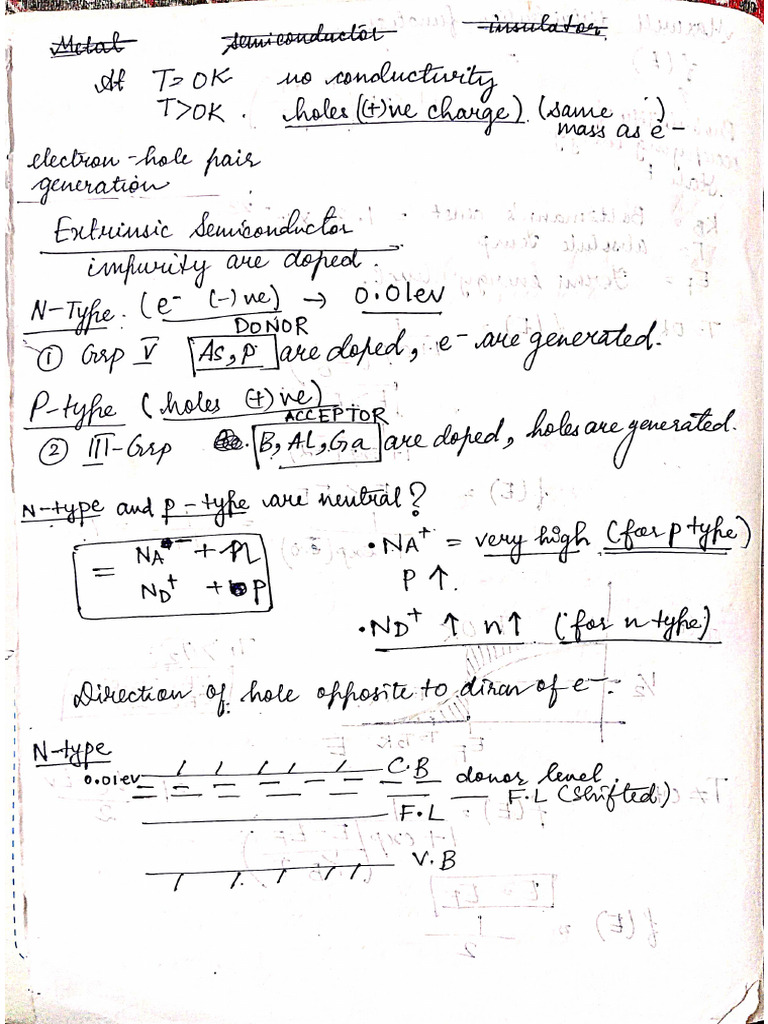 Metal semiconductor insulator
At T=0K no conductivity
T>0K. holes ((+)ve charge) (same
mass as e-)
electron-hole pair
generation
Extrinsic Semiconductor
impurity are doped.
N-Type. (e- (-)ve) → 0.01ev
DONOR
① Grp V As, P are doped, e- are generated.
P-type (holes (+)ve)
ACCEPTOR
② III-Grp B, AL, Ga are doped, holes are generated.
N-type and p-type are neutral?
= NA- + n
ND+ + p
•NA+ = very high (for p type)
P↑.
•ND+ ↑ n↑ (for n type)
Direction of hole opposite to dirxn of e-.
N-type
0.01ev C.B donor level.
F.L (shifted)
F.L
V.B